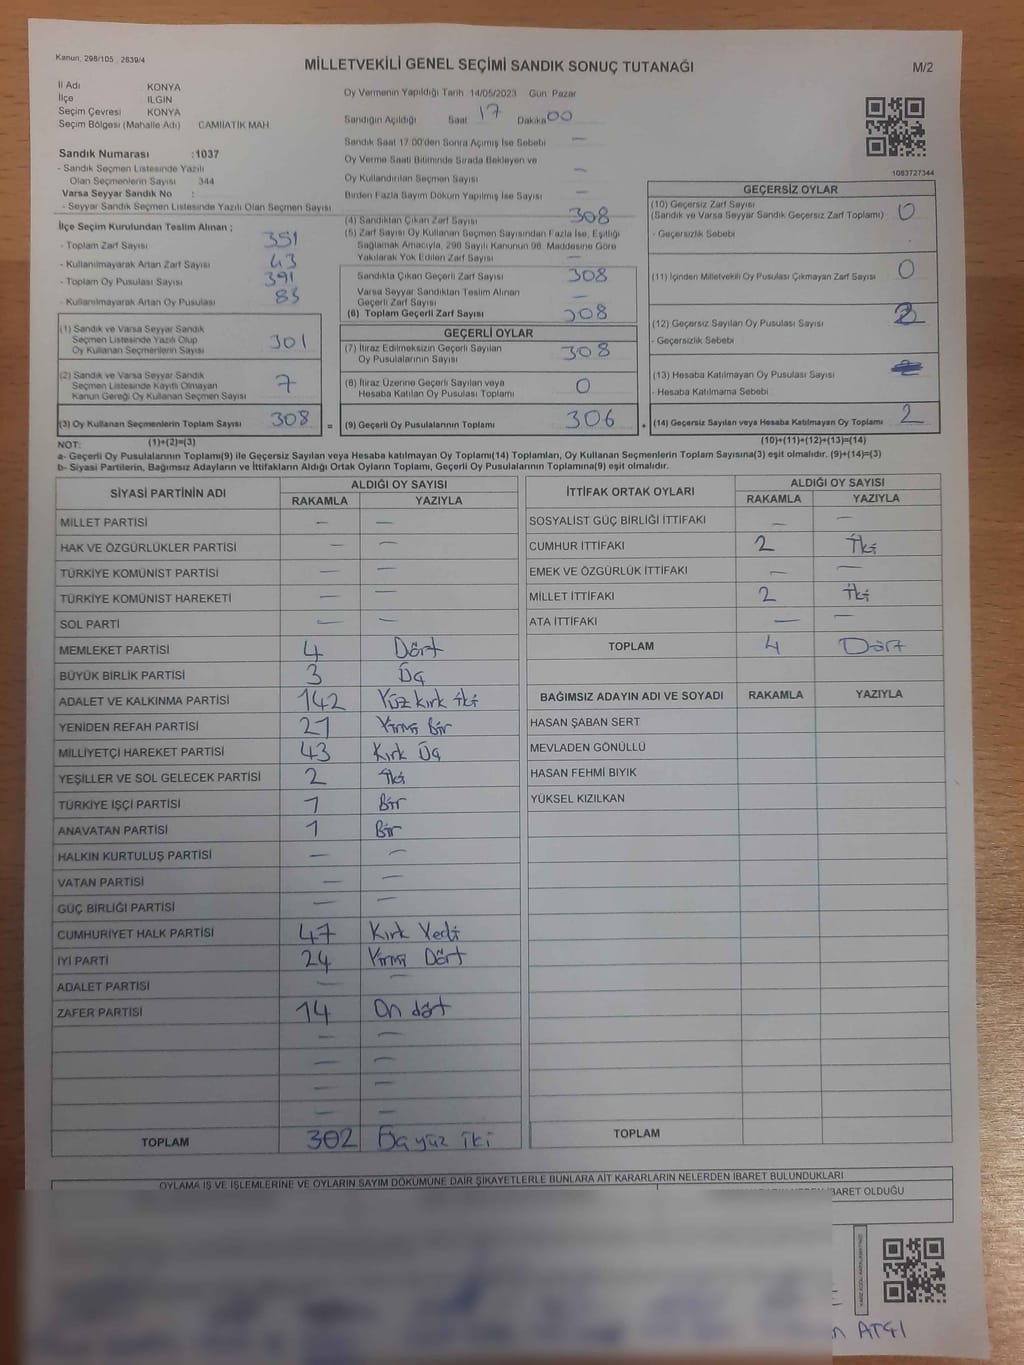 Kanun, 298/105 , 2839/4
MİLLETVEKİLİ GENEL SEÇİMİ SANDIK SONUÇ TUTANAĞI
M/2
İl Adı KONYA
İlçe ILGIN
Seçim Çevresi KONYA
Seçim Bölgesi (Mahalle Adı) CAMİİATİK MAH
Sandık Numarası :1037
- Sandık Seçmen Listesinde Yazılı
Olan Seçmenlerin Sayısı 344
Varsa Seyyar Sandık No :
- Seyyar Sandık Seçmen Listesinde Yazılı Olan Seçmen Sayısı
İlçe Seçim Kurulundan Teslim Alınan ;
- Toplam Zarf Sayısı 351
- Kullanılmayarak Artan Zarf Sayısı 43
- Toplam Oy Pusulası Sayısı 391
- Kullanılmayarak Artan Oy Pusulası 83
(1) Sandık ve Varsa Seyyar Sandık
Seçmen Listesinde Yazılı Olup
Oy Kullanan Seçmenlerin Sayısı 301
(2) Sandık ve Varsa Seyyar Sandık
Seçmen Listesinde Kayıtlı Olmayan
Kanun Gereği Oy Kullanan Seçmen Sayısı 7
(3) Oy Kullanan Seçmenlerin Toplam Sayısı 308 =
Oy Vermenin Yapıldığı Tarih 14/05/2023 Gün Pazar
Sandığın Açıldığı Saat 17 Dakika 00
Sandık Saat 17.00'den Sonra Açımış İse Sebebi —
Oy Verme Saati Bitiminde Sırada Bekleyen ve
Oy Kullandırılan Seçmen Sayısı —
Birden Fazla Sayım Döküm Yapılmış İse Sayısı —
(4) Sandıktan Çıkan Zarf Sayısı 308
(5) Zarf Sayısı Oy Kullanan Seçmen Sayısından Fazla İse, Eşitliği
Sağlamak Amacıyla, 298 Sayılı Kanunun 98. Maddesine Göre
Yakılarak Yok Edilen Zarf Sayısı —
Sandıkta Çıkan Geçerli Zarf Sayısı 308
Varsa Seyyar Sandıktan Teslim Alınan
Geçerli Zarf Sayısı —
(6) Toplam Geçerli Zarf Sayısı 308
GEÇERLİ OYLAR
(7) İtiraz Edilmeksizin Geçerli Sayılan
Oy Pusulalarının Sayısı 308
(8) İtiraz Üzerine Geçerli Sayılan veya
Hesaba Katılan Oy Pusulası Toplamı 0
(9) Geçerli Oy Pusulalarının Toplamı 306 +
1083727344
GEÇERSİZ OYLAR
(10) Geçersiz Zarf Sayısı
(Sandık ve Varsa Seyyar Sandık Geçersiz Zarf Toplamı) 0
- Geçersizlik Sebebi
(11) İçinden Milletvekili Oy Pusulası Çıkmayan Zarf Sayısı 0
(12) Geçersiz Sayılan Oy Pusulası Sayısı
- Geçersizlik Sebebi
(13) Hesaba Katılmayan Oy Pusulası Sayısı
- Hesaba Katılmama Sebebi
(14) Geçersiz Sayılan veya Hesaba Katılmayan Oy Toplamı 2
NOT: (1)+(2)=(3) (10)+(11)+(12)+(13)=(14)
a- Geçerli Oy Pusulalarının Toplamı(9) ile Geçersiz Sayılan veya Hesaba katılmayan Oy Toplamı(14) Toplamları, Oy Kullanan Seçmenlerin Toplam Sayısına(3) eşit olmalıdır. (9)+(14)=(3)
b- Siyasi Partilerin, Bağımsız Adayların ve İttifakların Aldığı Ortak Oyların Toplamı, Geçerli Oy Pusulalarının Toplamına(9) eşit olmalıdır.
SİYASİ PARTİNİN ADI ALDIĞI OY SAYISI
RAKAMLA YAZIYLA
MİLLET PARTİSİ — —
HAK VE ÖZGÜRLÜKLER PARTİSİ — —
TÜRKİYE KOMÜNİST PARTİSİ — —
TÜRKİYE KOMÜNİST HAREKETİ — —
SOL PARTİ — —
MEMLEKET PARTİSİ 4 Dört
BÜYÜK BİRLİK PARTİSİ 3 Üç
ADALET VE KALKINMA PARTİSİ 142 Yüz kırk iki
YENİDEN REFAH PARTİSİ 21 Yirmi Bir
MİLLİYETÇİ HAREKET PARTİSİ 43 Kırk Üç
YEŞİLLER VE SOL GELECEK PARTİSİ 2 İki
TÜRKİYE İŞÇİ PARTİSİ 1 Bir
ANAVATAN PARTİSİ 1 Bir
HALKIN KURTULUŞ PARTİSİ — —
VATAN PARTİSİ — —
GÜÇ BİRLİĞİ PARTİSİ — —
CUMHURİYET HALK PARTİSİ 47 Kırk Yedi
İYİ PARTİ 24 Yirmi Dört
ADALET PARTİSİ — —
ZAFER PARTİSİ 14 On dört
— —
— —
— —
— —
TOPLAM 302 Üçyüz iki
İTTİFAK ORTAK OYLARI ALDIĞI OY SAYISI
RAKAMLA YAZIYLA
SOSYALİST GÜÇ BİRLİĞİ İTTİFAKI — —
CUMHUR İTTİFAKI 2 İki
EMEK VE ÖZGÜRLÜK İTTİFAKI — —
MİLLET İTTİFAKI 2 İki
ATA İTTİFAKI — —
TOPLAM 4 Dört
BAĞIMSIZ ADAYIN ADI VE SOYADI RAKAMLA YAZIYLA
HASAN ŞABAN SERT
MEVLADEN GÖNÜLLÜ
HASAN FEHMİ BIYIK
YÜKSEL KIZILKAN
TOPLAM
OYLAMA İŞ VE İŞLEMLERİNE VE OYLARIN SAYIM DÖKÜMÜNE DAİR ŞİKAYETLERLE BUNLARA AİT KARARLARIN NELERDEN İBARET BULUNDUKLARI
İBARET OLDUĞU